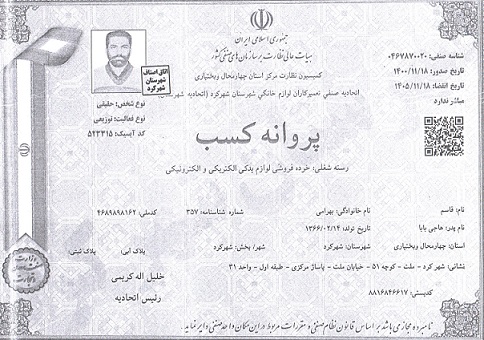 جمهوری اسلامی ایران
هیات عالی نظارت بر سازمان های صنفی کشور
کمیسیون نظارت مرکز استان چهارمحال وبختیاری
اتحادیه صنفی تعمیرکاران لوازم خانگی شهرستان شهرکرد (اتحادیه شهرستان)
شناسه صنفی: ۰۴۶۷۸۷۰۰۲۰
تاریخ صدور: ۱۴۰۰/۱۱/۱۸
تاریخ انقضا: ۱۴۰۵/۱۱/۱۸
مباشر ندارد
اتاق اصناف
شهرستان
شهرکرد
نوع شخص: حقیقی
نوع فعالیت: توزیعی
کد آیسیک: ۵۲۳۳۱۵
پروانه کسب
رسته شغلی: خرده فروشی لوازم یدکی الکتریکی و الکترونیکی
نام: قاسم نام خانوادگی: بهرامی شماره شناسنامه: ۳۵۷ کدملی: ۴۶۸۹۸۹۸۱۶۲
نام پدر: حاجی بابا تاریخ تولد: ۱۳۶۶/۰۲/۱۴
استان: چهارمحال وبختیاری شهرستان: شهرکرد شهر/ بخش: شهرکرد پلاک آبی: پلاک ثبتی:
نشانی: شهر کرد - ملت - کوچه ۵۱ - خیابان ملت - پاساژ مرکزی - طبقه اول - واحد ۳۱
کدپستی: ۸۸۱۶۸۴۶۶۱۷
خلیل اله کریمی
رئیس اتحادیه
وزارت
صنعت، معدن
و تجارت
نامبرده مجاز می باشد بر اساس قانون نظام صنفی و مقررات مربوط در این مکان واحد صنفی دایر نماید.